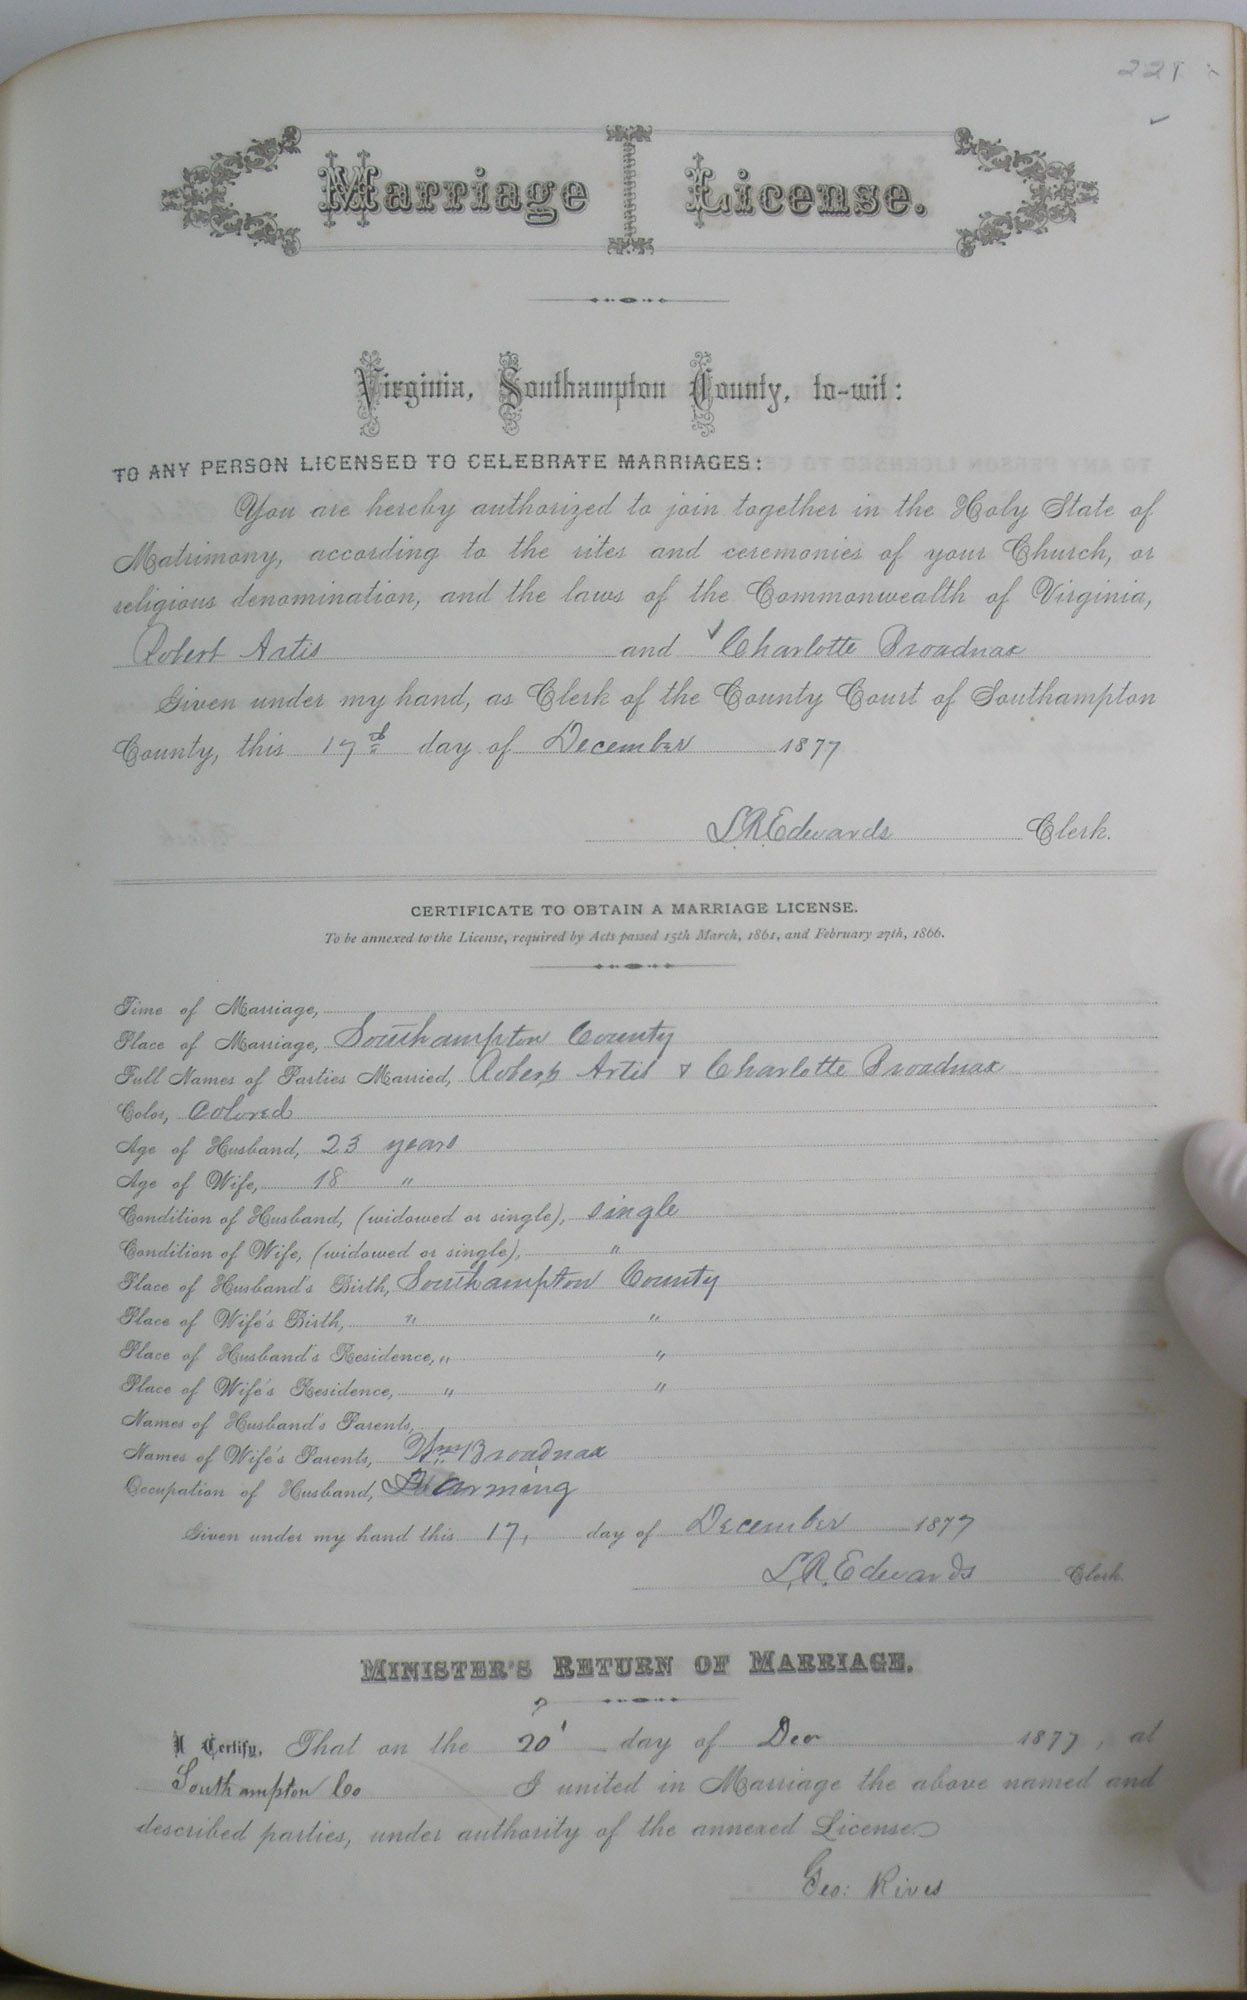 221
Marriage License.
Virginia, Southampton County, to-wit:
TO ANY PERSON LICENSED TO CELEBRATE MARRIAGES:
You are hereby authorized to join together in the Holy State of
Matrimony, according to the rites and ceremonies of your Church, or
religious denomination, and the laws of the Commonwealth of Virginia,
Robert Artis and Charlotte Broadnax
Given under my hand, as Clerk of the County Court of Southampton
County, this 17th day of December 1877
L.R. Edwards Clerk.
CERTIFICATE TO OBTAIN A MARRIAGE LICENSE.
To be annexed to the License, required by Acts passed 15th March, 1861, and February 27th, 1866.
Time of Marriage,
Place of Marriage, Southampton County
Full Names of Parties Married, Robert Artis & Charlotte Broadnax
Color, Colored
Age of Husband, 23 years
Age of Wife, 18 "
Condition of Husband, (widowed or single), single
Condition of Wife, (widowed or single), "
Place of Husband's Birth, Southampton County
Place of Wife's Birth, " "
Place of Husband's Residence, " "
Place of Wife's Residence, " "
Names of Husband's Parents,
Names of Wife's Parents, Wm Broadnax
Occupation of Husband, Farming
Given under my hand this 17, day of December 1877
L.R. Edwards Clerk.
MINISTER'S RETURN OF MARRIAGE.
I Certify, That on the 20 day of Dec 1877, at
Southampton Co I united in Marriage the above named and
described parties, under authority of the annexed License.
Geo: Rives